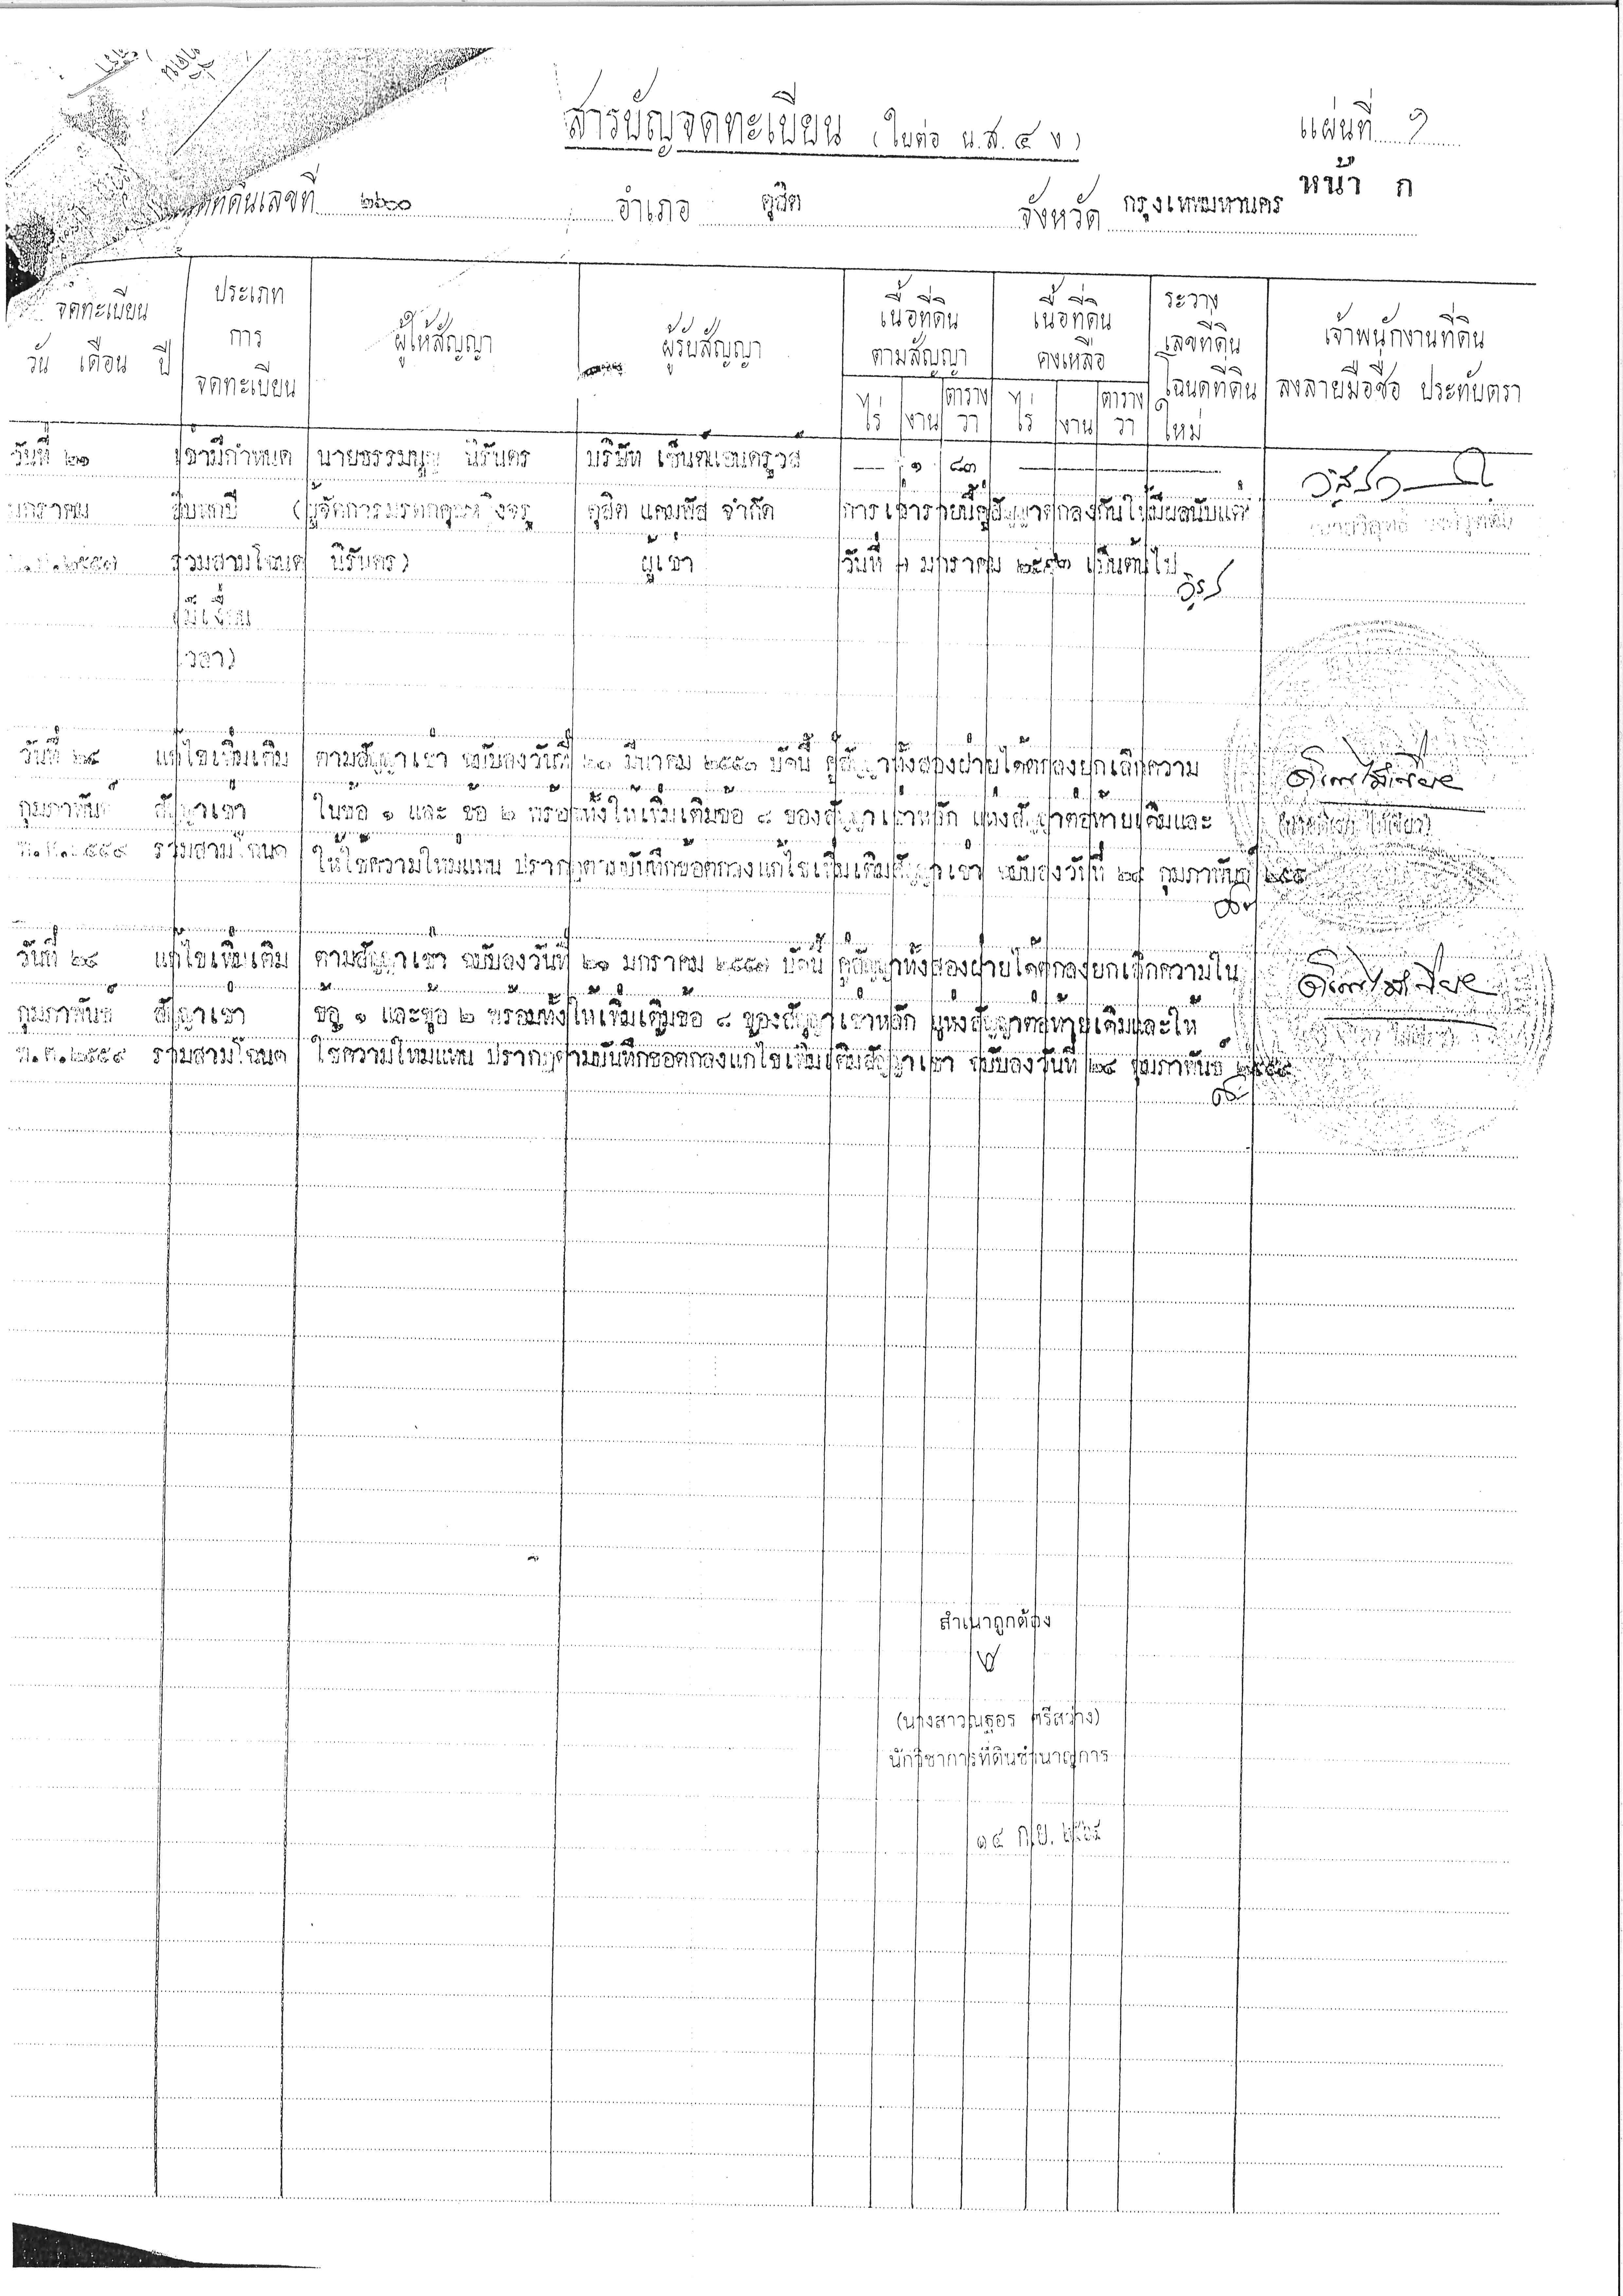 สารบัญจดทะเบียน (ใบต่อ น.ส.๔ ง)
แผ่นที่
หน้า ก
ที่ดินเลขที่ ๒๖๐๐ อำเภอ ดุสิต จังหวัด กรุงเทพมหานคร
จดทะเบียน
วัน เดือน ปี
ประเภท
การ
จดทะเบียน
ผู้ให้สัญญา
ผู้รับสัญญา
เนื้อที่ดิน
ตามสัญญา
ไร่ งาน ตาราง
วา
เนื้อที่ดิน
คงเหลือ
ไร่ งาน ตาราง
วา
ระวาง
เลขที่ดิน
โฉนดที่ดิน
ใหม่
เจ้าพนักงานที่ดิน
ลงลายมือชื่อ ประทับตรา
วันที่ ๒๑ เช่ามีกำหนด นายธรรมนูญ นิรันดร บริษัท เซ็นต์แอนดรูวส์ — ๑ ๘๓ —
มกราคม สิบหกปี (ผู้จัดการมรดกคุณหญิงจรู ดุสิต แคมพัส จำกัด การเช่ารายนี้คู่สัญญาตกลงกันให้มีผลนับแต่
รวมสามโฉนด นิรันดร) ผู้เช่า วันที่ ๑ มกราคม เป็นต้นไป
(มีเงื่อน
เวลา)
วันที่ ๒๔ แก้ไขเพิ่มเติม ตามสัญญาเช่า ฉบับลงวันที่ มีนาคม บัดนี้ คู่สัญญาทั้งสองฝ่ายได้ตกลงยกเลิกความ
กุมภาพันธ์ สัญญาเช่า ในข้อ ๑ และ ข้อ ๒ พร้อมทั้งให้เพิ่มเติมข้อ ๘ ของสัญญาเช่าหลัก แห่งสัญญาต่อท้ายเดิมและ
พ.ศ.๒๕๕๙ รวมสามโฉนด ให้ใช้ความใหม่แทน ปรากฏตามบันทึกข้อตกลงแก้ไขเพิ่มเติมสัญญาเช่า ฉบับลงวันที่ ๒๔ กุมภาพันธ์
วันที่ ๒๔ แก้ไขเพิ่มเติม ตามสัญญาเช่า ฉบับลงวันที่ ๒๑ มกราคม ๒๕๕๓ บัดนี้ คู่สัญญาทั้งสองฝ่ายได้ตกลงยกเลิกความใน
กุมภาพันธ์ สัญญาเช่า ข้อ ๑ และข้อ ๒ พร้อมทั้งให้เพิ่มเติมข้อ ๘ ของสัญญาเช่าหลัก แห่งสัญญาต่อท้ายเดิมและให้
พ.ศ.๒๕๕๙ รวมสามโฉนด ใช้ความใหม่แทน ปรากฏตามบันทึกข้อตกลงแก้ไขเพิ่มเติมสัญญาเช่า ฉบับลงวันที่ ๒๔ กุมภาพันธ์ ๒๕๕๙
สำเนาถูกต้อง
(นางสาวณฐอร ศรีสว่าง)
นักวิชาการที่ดินชำนาญการ
๑๔ ก.ย.